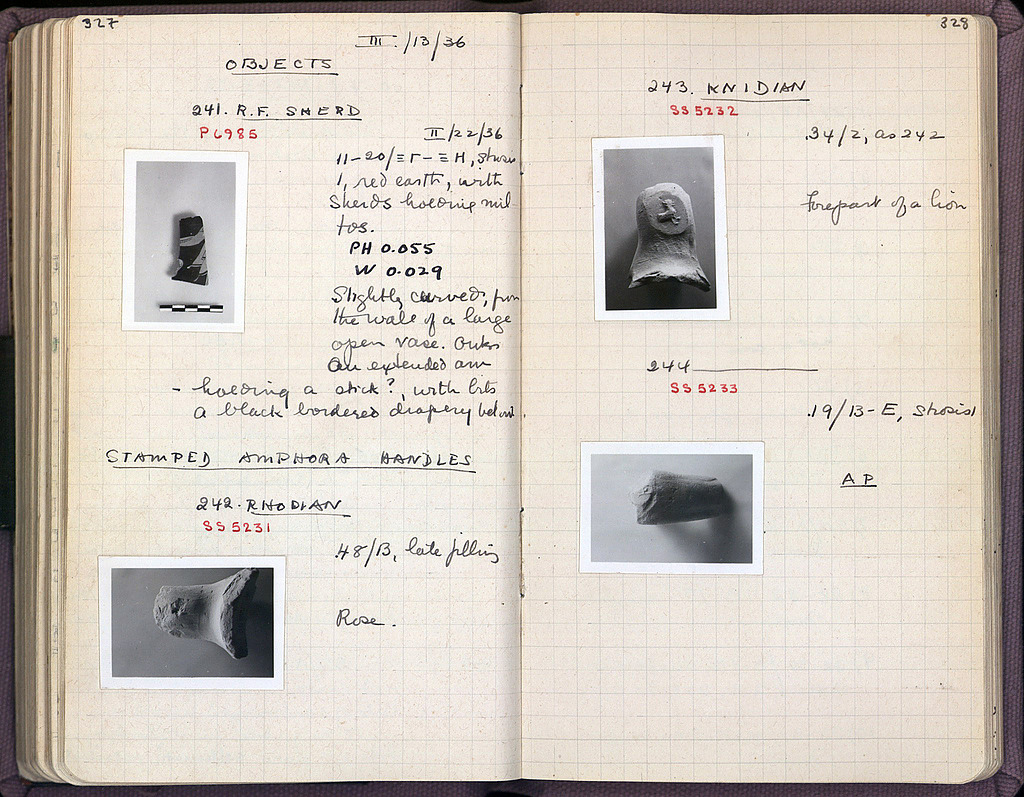 327
III/13/36
OBJECTS
241. R.F. SHERD
P 6985
II/22/36
11-20/ΞΓ-ΞΗ,
1, red earth, with
Sherds holding mil
tos.
PH 0.055
W 0.029
Slightly curved, from
the wall of a large
open vase.
An extended arm
- holding a stick?, with bits
a black bordered drapery below
STAMPED AMPHORA HANDLES
242. RHODIAN
SS 5231
48/B, late filling
Rose.
328
243. KNIDIAN
SS 5232
.34/2, as 242
Forepart of a lion
244
SS 5233
.19/13-E,
AP